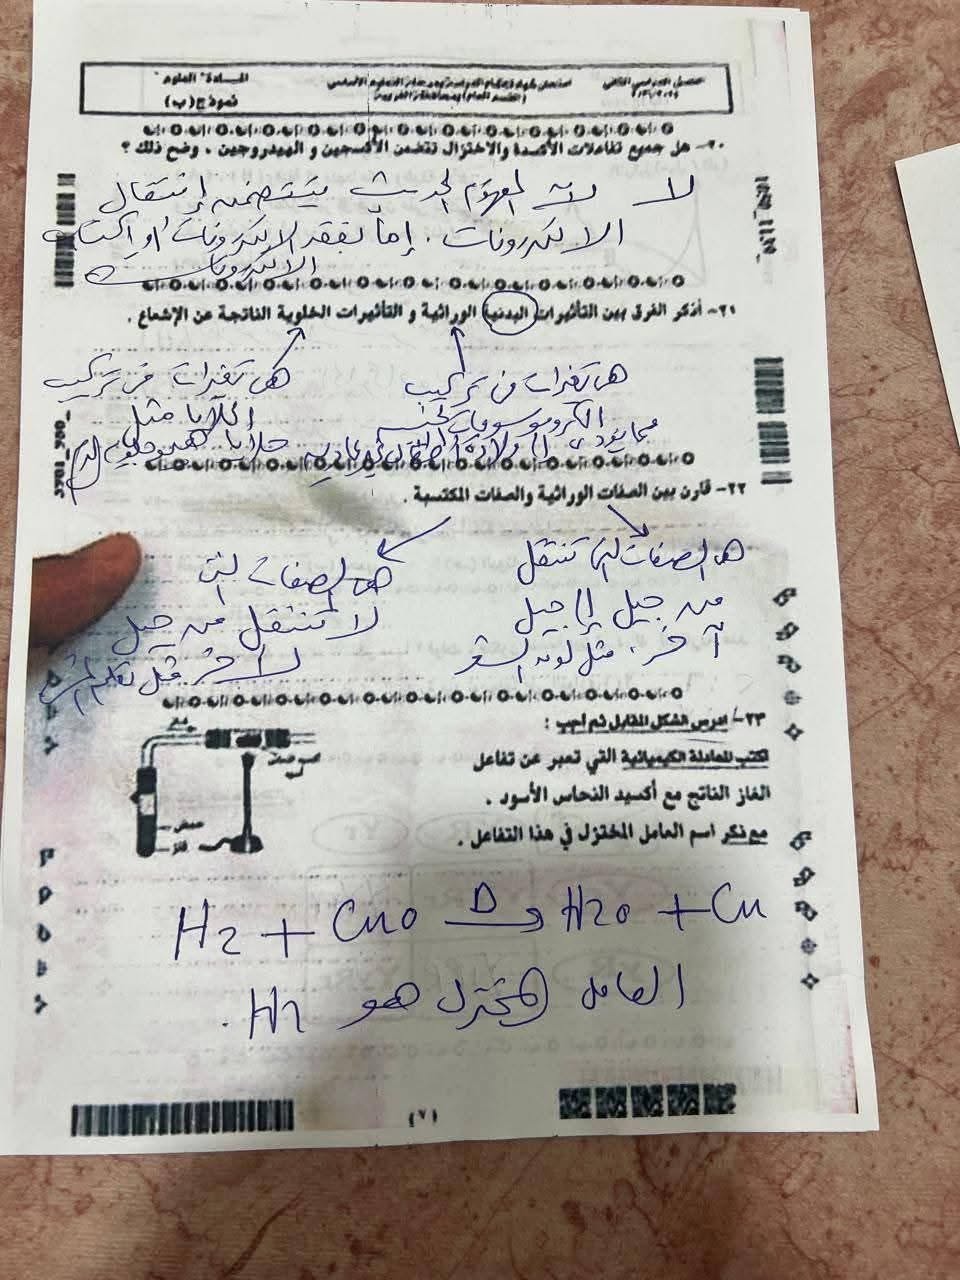 المـادة "العلوم"
نموذج (ب)
٢٠- هل جميع تفاعلات الأكسدة والاختزال تتضمن الأكسجين و الهيدروجين . وضح ذلك ؟
لا لأن المفهوم الحديث يتضمن إنتقال
الالكترونات . إما بفقد الالكترونات أو إكتساب
الالكترونات
٢١- أذكر الفرق بين التأثيرات البدنية الوراثية و التأثيرات الخلوية الناتجة عن الإشعاع .
هى تغيرات فى تركيب
الكروموسومات الجنسية
مما يؤدى الى ولادة أطفال غير عادية
هى تغيرات فى تركيب
الخلايا مثل
خلايا هيموجلوبين الدم
٢٢- قارن بين الصفات الوراثية والصفات المكتسبة .
هى الصفات التى تنتقل
من جيل إلى جيل
آخر . مثل لون الشعر
هى الصفات التى
لا تنتقل من جيل
لآخر مثل تعلم المشى
٢٣- ادرس الشكل المقابل ثم أجب :
اكتب المعادلة الكيميائية التي تعبر عن تفاعل
الغاز الناتج مع أكسيد النحاس الأسود .
مع ذكر اسم العامل المختزل في هذا التفاعل .
غاز
حمض
فلز
H2 + CuO Δ→ H2O + Cu
العامل المختزل هو H2 .
(٧)